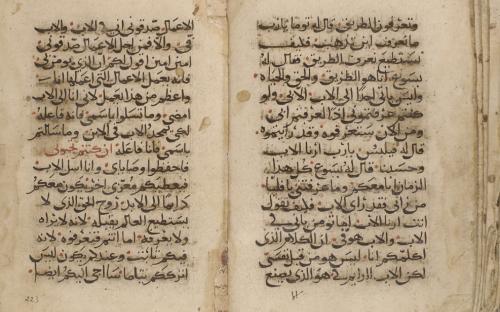 وتعرفون الطريق قال له توما يارب
ما نعرف اين تذهب فكيف
نستطيع نعرف الطريق فقال له
يسوع انا هو الطريق والحق والحياه
وليس ياتي احدا الى الاب الا بي ولو
كنتم عرفتموني اذا لعرفتم ابي
ومن الان ستعرفوه وقد رايتموه
قال له فيلبس يارب ارنا الاب
وحسبنا قال له يسوع كل هذا
الزمان انا معكم وما عرفتم
من راني فقد راي الاب فكيف تقول
انت ارنا الاب اما تومن باني في
الاب والاب هو في ان الكلام الذي
اكلمكم انا ليس هو من قبل نفسي
لكن الاب في هو الذي يصنع
الاعمال صدقوني اني في الاب والاب
في والا فمن اجل الاعمال صدقوني
امين امين اقول لكم ان الذي يومن بي
فانه يعمل الاعمال التي اعملها انا
واعظم من هذا يعمل لاني انا الى الاب
امضي وما تسلوا باسمي فانه فاعله
لكي يتمجد الاب في الابن وما سالتم
باسمي فانا فاعله ان كنتم تحبوني
فاحفظوا وصاياي وانا اسل الاب
فيعطيكم معزي اخر يكون معكم
الى الابد روح الحق الذي لا
يستطيع العالم يقبله لانه لا يراه
ولا يعرفه اما انتم فتعرفوه لانه
فيكم ثابت وعندكم يكون ليس
اترككم يتاما سااجي اليكم ايضا
223